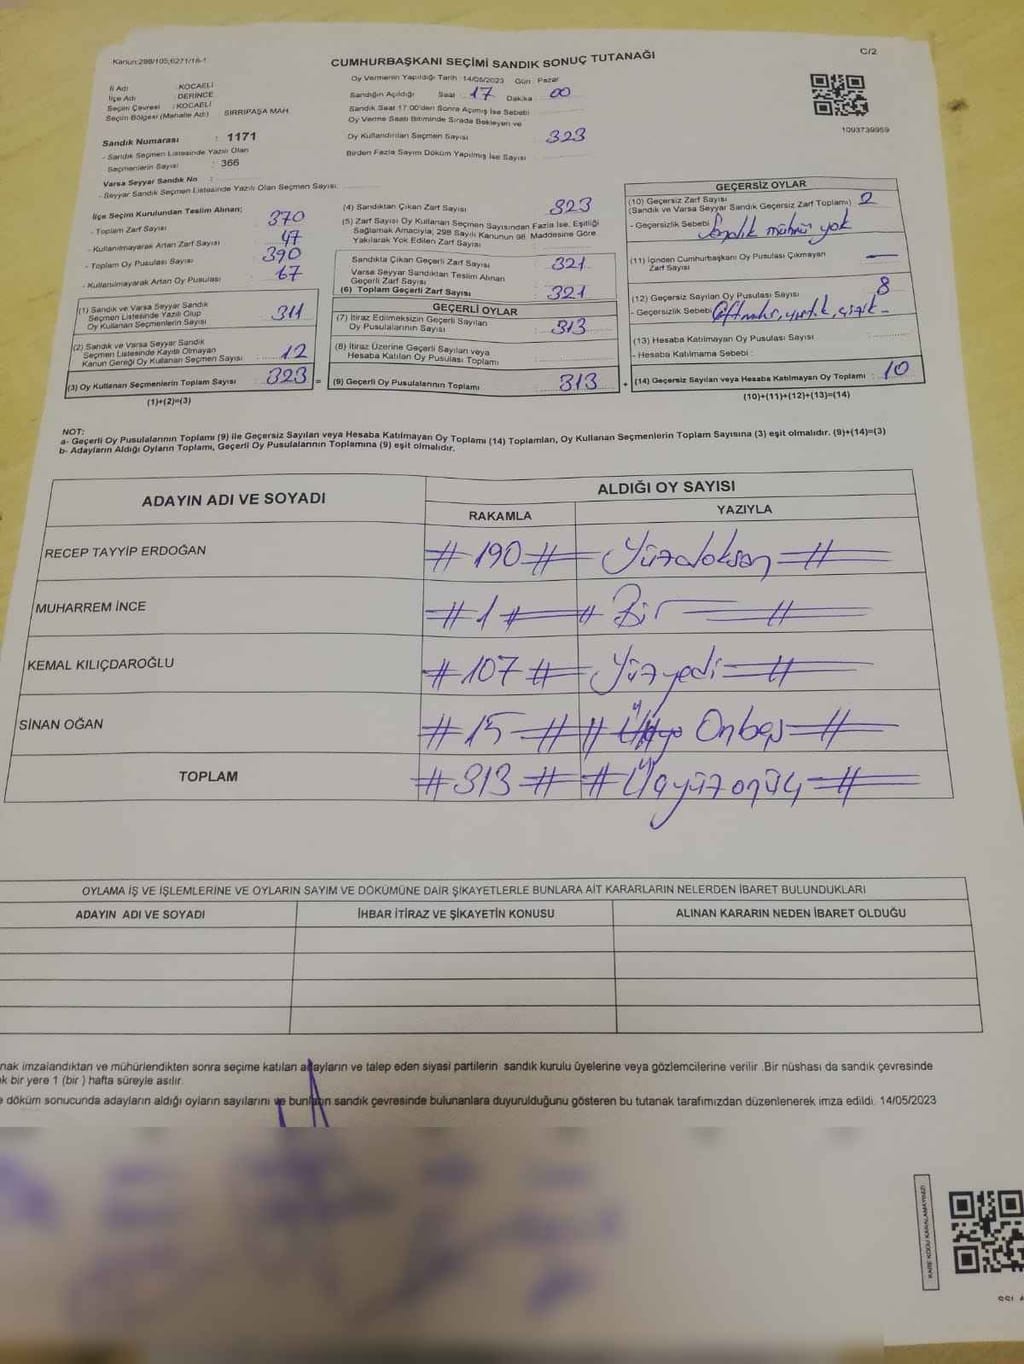 Kanun:298/105,6271/18-1
C/2
CUMHURBAŞKANI SEÇİMİ SANDIK SONUÇ TUTANAĞI
İl Adı : KOCAELİ
İlçe Adı : DERİNCE
Seçim Çevresi : KOCAELİ
Seçim Bölgesi (Mahalle Adı) SIRRIPAŞA MAH.
Sandık Numarası : 1171
- Sandık Seçmen Listesinde Yazılı Olan
Seçmenlerin Sayısı : 366
Varsa Seyyar Sandık No :
- Seyyar Sandık Seçmen Listesinde Yazılı Olan Seçmen Sayısı:
Oy Vermenin Yapıldığı Tarih 14/05/2023 Gün : Pazar
Sandığın Açıldığı Saat 17 Dakika 00
Sandık Saat 17:00'den Sonra Açılmış İse Sebebi
Oy Verme Saati Bitiminde Sırada Bekleyen ve
Oy Kullandırılan Seçmen Sayısı 323
Birden Fazla Sayım Döküm Yapılmış İse Sayısı
1093739959
İlçe Seçim Kurulundan Teslim Alınan;
- Toplam Zarf Sayısı 370
- Kullanılmayarak Artan Zarf Sayısı 47
- Toplam Oy Pusulası Sayısı 390
- Kullanılmayarak Artan Oy Pusulası 67
(1) Sandık ve Varsa Seyyar Sandık
Seçmen Listesinde Yazılı Olup
Oy Kullanan Seçmenlerin Sayısı 311
(2) Sandık ve Varsa Seyyar Sandık
Seçmen Listesinde Kayıtlı Olmayan
Kanun Gereği Oy Kullanan Seçmen Sayısı 12
(3) Oy Kullanan Seçmenlerin Toplam Sayısı 323 =
(1)+(2)=(3)
(4) Sandıktan Çıkan Zarf Sayısı 323
(5) Zarf Sayısı Oy Kullanan Seçmen Sayısından Fazla İse, Eşitliği
Sağlamak Amacıyla; 298 Sayılı Kanunun 98. Maddesine Göre
Yakılarak Yok Edilen Zarf Sayısı
Sandıkta Çıkan Geçerli Zarf Sayısı 321
Varsa Seyyar Sandıktan Teslim Alınan
Geçerli Zarf Sayısı
(6) Toplam Geçerli Zarf Sayısı 321
GEÇERLİ OYLAR
(7) İtiraz Edilmeksizin Geçerli Sayılan
Oy Pusulalarının Sayısı 313
(8) İtiraz Üzerine Geçerli Sayılan veya
Hesaba Katılan Oy Pusulası Toplamı
(9) Geçerli Oy Pusulalarının Toplamı 313 +
GEÇERSİZ OYLAR
(10) Geçersiz Zarf Sayısı
(Sandık ve Varsa Seyyar Sandık Geçersiz Zarf Toplamı) 2
- Geçersizlik Sebebi Sandık mühür yok
(11) İçinden Cumhurbaşkanı Oy Pusulası Çıkmayan
Zarf Sayısı —
(12) Geçersiz Sayılan Oy Pusulası Sayısı 8
- Geçersizlik Sebebi
(13) Hesaba Katılmayan Oy Pusulası Sayısı
- Hesaba Katılmama Sebebi :
(14) Geçersiz Sayılan veya Hesaba Katılmayan Oy Toplamı : 10
(10)+(11)+(12)+(13)=(14)
NOT:
a- Geçerli Oy Pusulalarının Toplamı (9) ile Geçersiz Sayılan veya Hesaba Katılmayan Oy Toplamı (14) Toplamları, Oy Kullanan Seçmenlerin Toplam Sayısına (3) eşit olmalıdır. (9)+(14)=(3)
b- Adayların Aldığı Oyların Toplamı, Geçerli Oy Pusulalarının Toplamına (9) eşit olmalıdır.
ADAYIN ADI VE SOYADI
ALDIĞI OY SAYISI
RAKAMLA YAZIYLA
RECEP TAYYİP ERDOĞAN # 190 # Yüzdoksan #
MUHARREM İNCE # 1 # # Bir #
KEMAL KILIÇDAROĞLU # 107 # Yüzyedi #
SİNAN OĞAN # 15 # # Onbeş #
TOPLAM # 313 # # Üçyüzonüç #
OYLAMA İŞ VE İŞLEMLERİNE VE OYLARIN SAYIM VE DÖKÜMÜNE DAİR ŞİKAYETLERLE BUNLARA AİT KARARLARIN NELERDEN İBARET BULUNDUKLARI
ADAYIN ADI VE SOYADI İHBAR İTİRAZ VE ŞİKAYETİN KONUSU ALINAN KARARIN NEDEN İBARET OLDUĞU
nak imzalandıktan ve mühürlendikten sonra seçime katılan adayların ve talep eden siyasi partilerin sandık kurulu üyelerine veya gözlemcilerine verilir .Bir nüshası da sandık çevresinde
k bir yere 1 (bir ) hafta süreyle asılır.
e döküm sonucunda adayların aldığı oyların sayılarını ve bunların sandık çevresinde bulunanlara duyurulduğunu gösteren bu tutanak tarafımızdan düzenlenerek imza edildi. 14/05/2023
KARE KODU KARALAMAYINIZ!